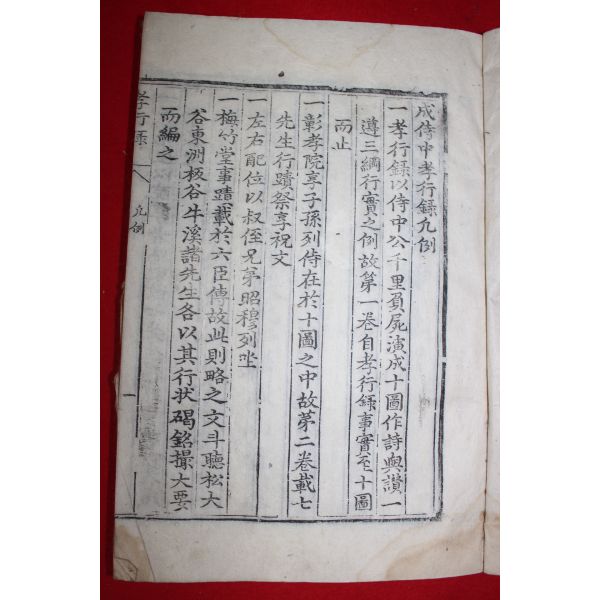 成侍中孝行錄凡例
一孝行錄以侍中公千里負屍演成十圖作詩與讚一
遵三綱行實之例故第一卷自孝行錄事實至十圖
而止
一彰孝院享子孫列侍在於十圖之中故第二卷載七
先生行蹟祭享祝文
一左右配位以叔侄兄弟昭穆列坐
一梅竹堂事蹟載於六臣傳故此則略之文斗聽松大
谷東洲板谷牛溪諸先生各以其行状碣銘撮大要
而編之
孝行錄 凡例 一